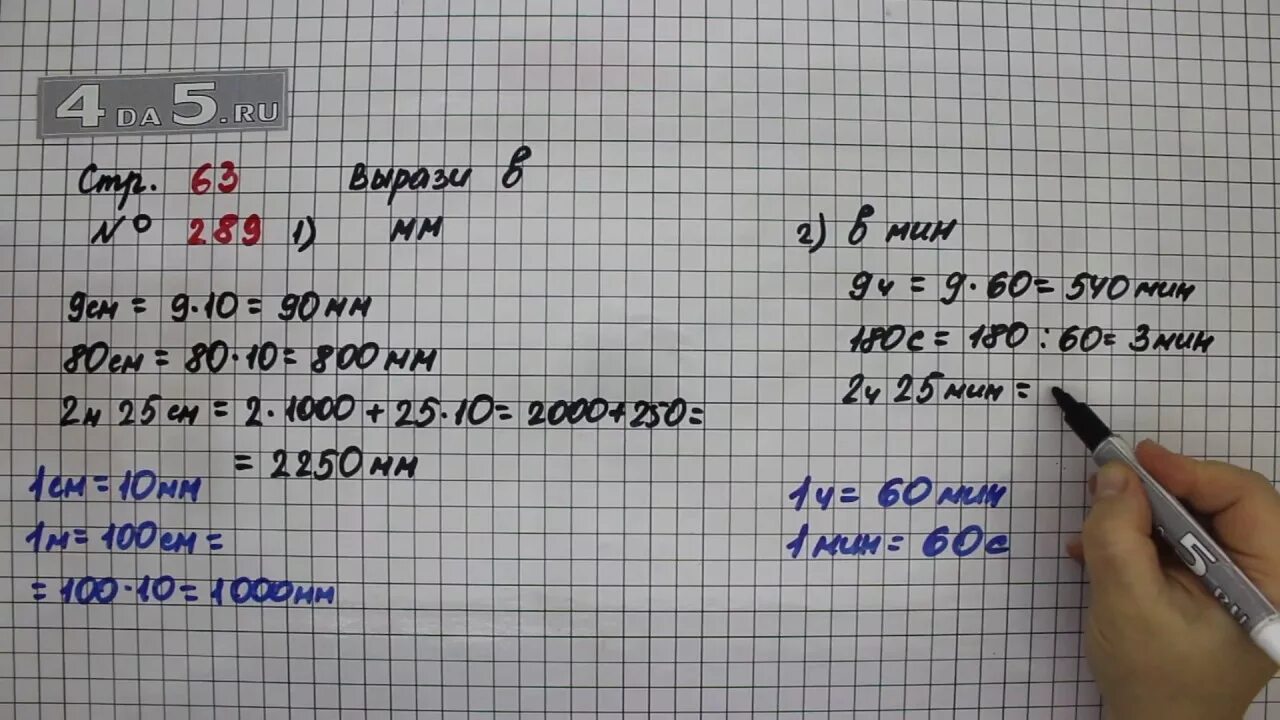 4DA5.RU
Стр. 63 Вырази в
№ 289 1) мм
9см = 9·10 = 90мм
80см = 80·10 = 800мм
2м 25см = 2·1000 + 25·10 = 2000+250=
= 2250мм
1см = 10мм
1м = 100см =
= 100·10 = 1000мм
2) в мин
9ч = 9·60 = 540мин
180с = 180 : 60 = 3мин
2ч 25мин =
1ч = 60мин
1мин = 60с
5.RU